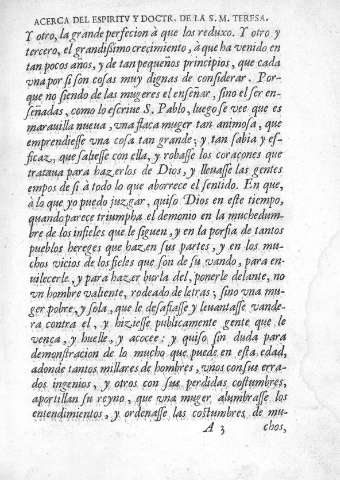 ACERCA DEL ESPIRITV Y DOCTR. DE LA S. M. TERESA.
Y otro, la grande perfecion à que los reduxo. Y otro y
tercero, el grandissimo crecimiento, à que ha venido en
tan pocos años, y de tan pequeños principios, que cada
vna por si son cosas muy dignas de considerar. Por-
que no siendo de las mugeres el enseñar, sino el ser en-
señadas, como lo escriue S. Pablo, luego se vee que es
marauilla nueua, vna flaca muger tan animosa, que
emprendiesse vna cosa tan grande; y tan sabia y ef-
ficaz, que saliesse con ella, y robasse los coraçones que
trataua para hazerlos de Dios, y lleuasse las gentes
empos de si à todo lo que aborrece el sentido. En que,
à lo que yo puedo juzgar, quiso Dios en este tiempo,
quando parece triumpha el demonio en la muchedum-
bre de los infieles que le siguen, y en la porfia de tantos
pueblos hereges que hazen sus partes, y en los mu-
chos vicios de los fieles que son de su vando, para en-
uilecerle, y para hazer burla del, ponerle delante, no
vn hombre valiente, rodeado de letras, sino vna mu-
ger pobre, y sola, que le desafiasse y leuantasse vande-
ra contra el, y hiziesse publicamente gente que le
vença, y huelle, y acocee: y quiso sin duda para
demonstracion de lo mucho que puede en esta edad,
adonde tantos millares de hombres, vnos con sus erra-
dos ingenios, y otros con sus perdidas costumbres,
aportillan su reyno, que vna muger alumbrasse los
entendimientos, y ordenasse las costumbres de mu-
A 3 chos,